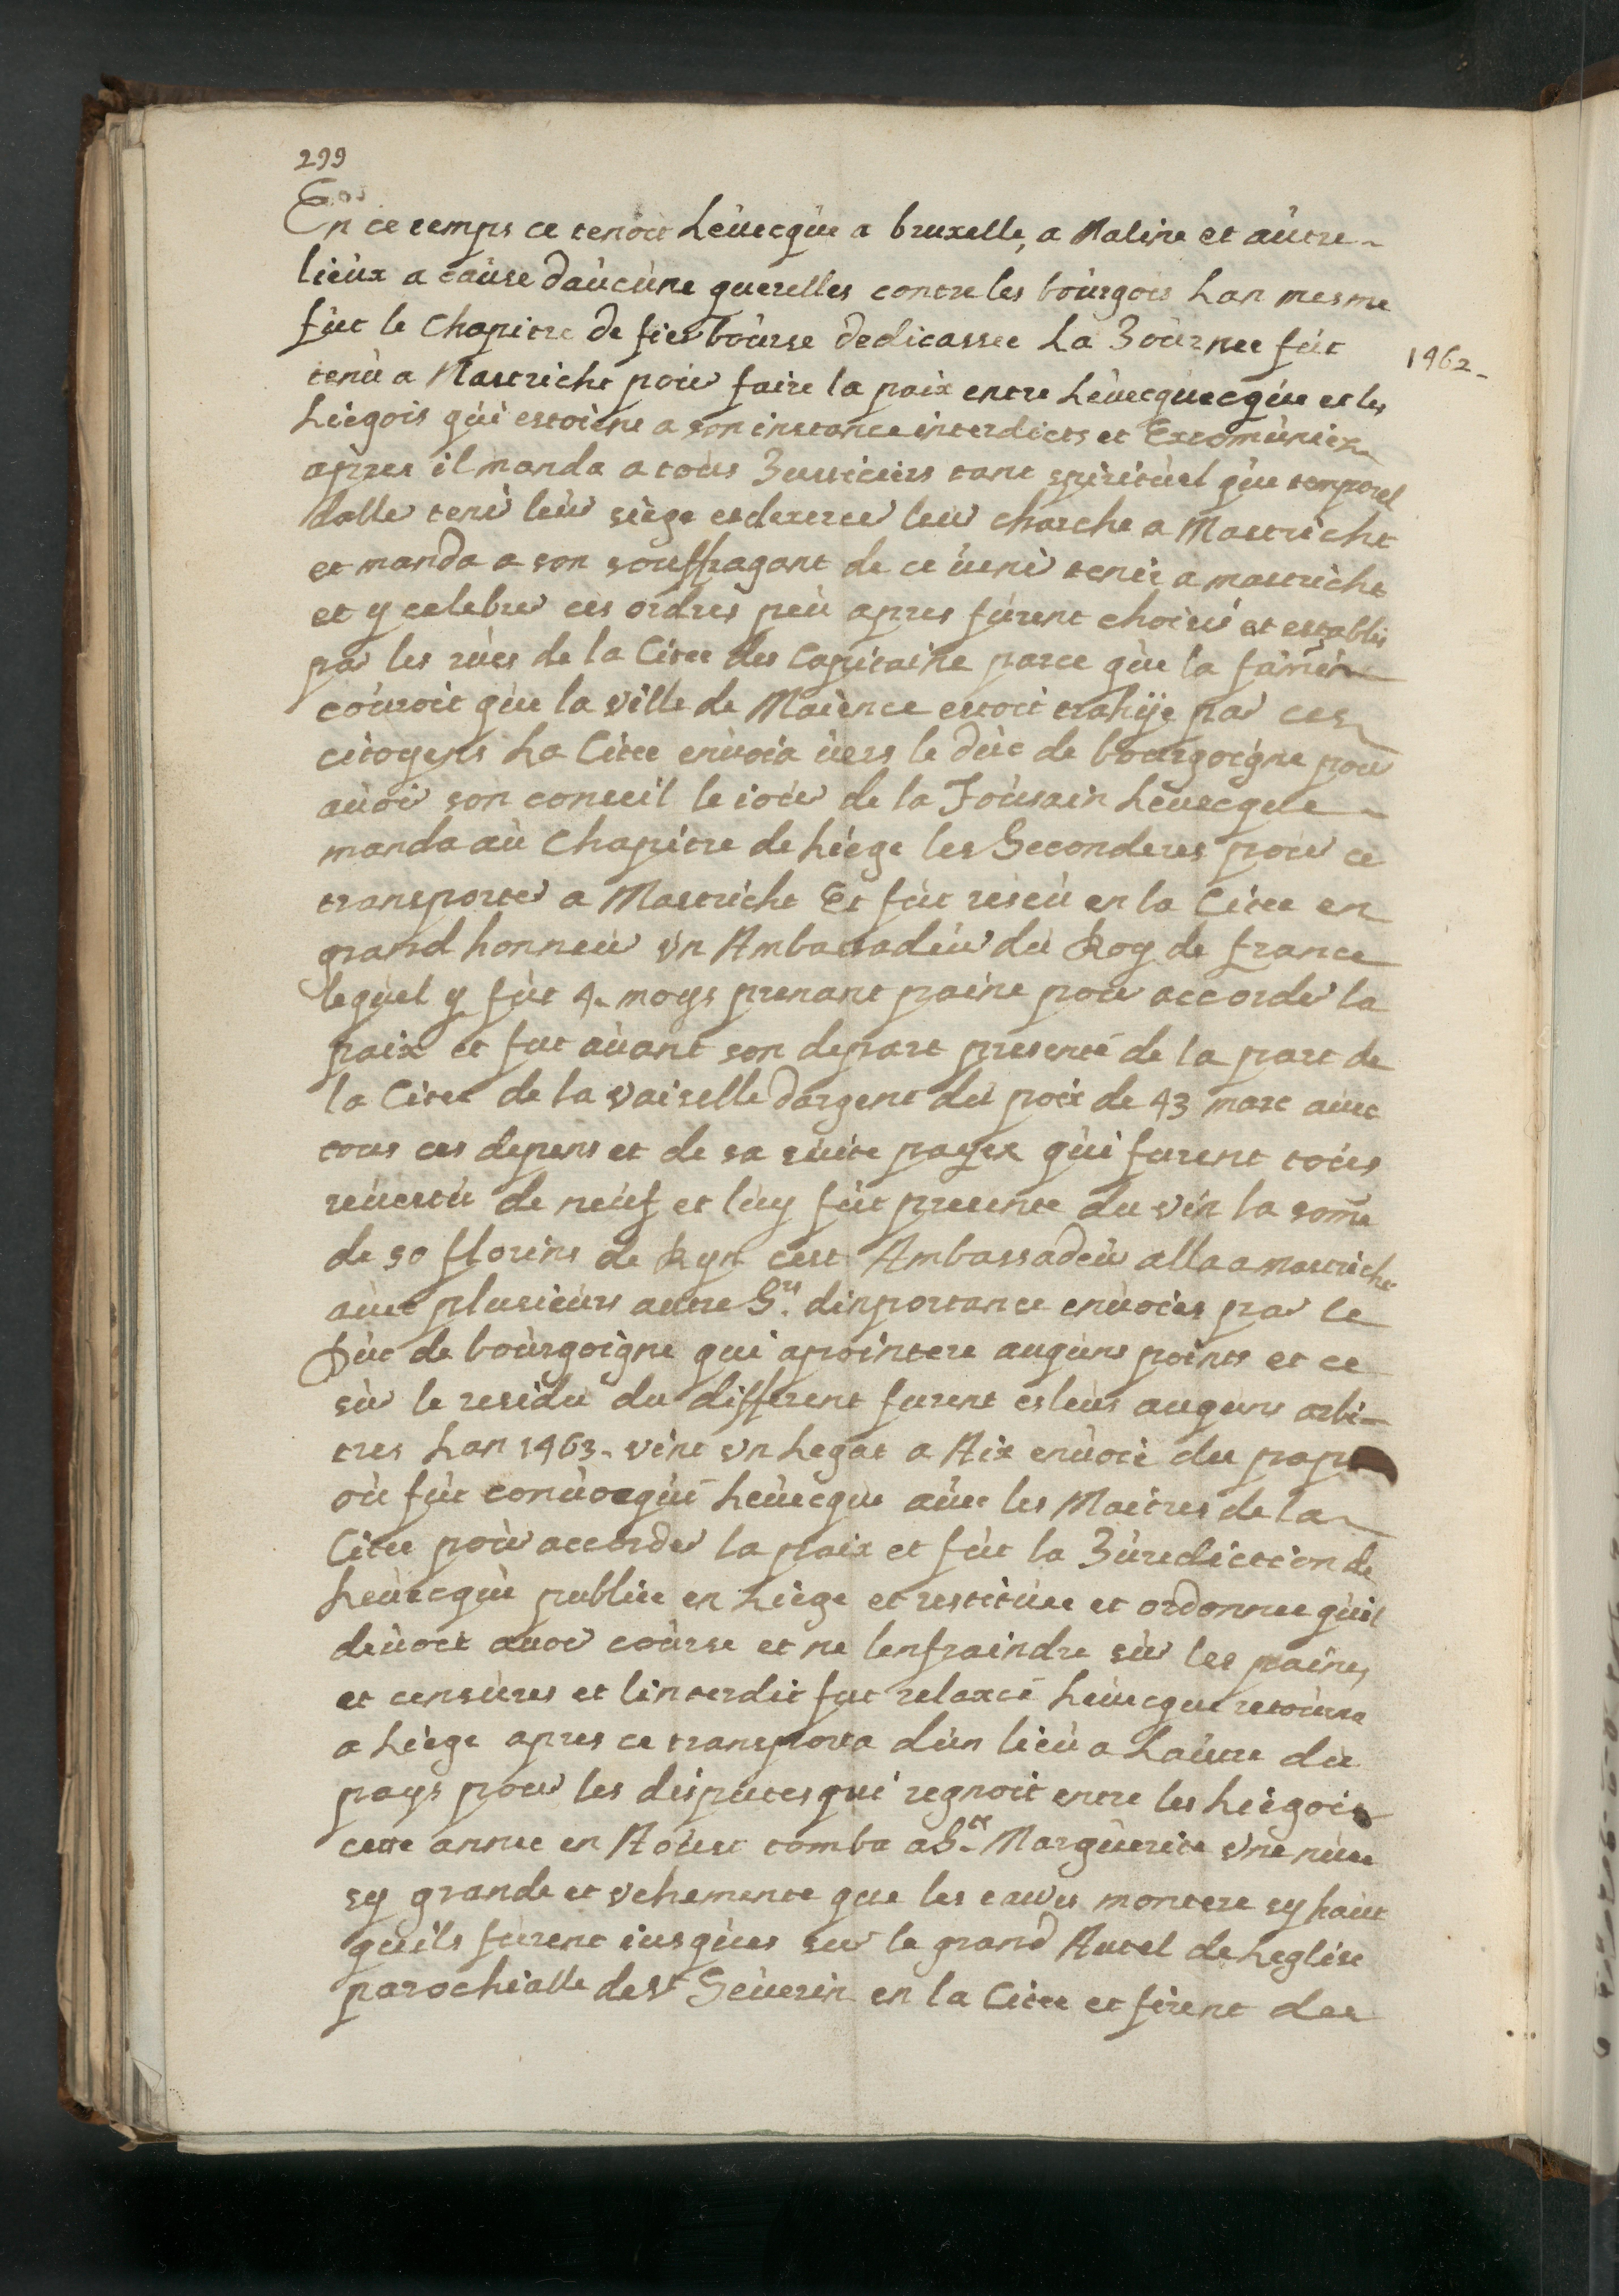 299
En ce temps ce tenoit Lèuecqùe a bruxelle, a Maline et aùtre
lieùx a caùse daùcùne querelles contre les boùrgois Lan mesme
fùt le Chapitre de fies boùrse dedicassee La Joùrnee fùt
1462
tenù a Mastricht poùr faire la paix entre Lèuecquecqùe et les
Liegois qùi estoient a son instance interdicts et Excomùniez
apres il manda a toùs Justiciers tant spiritùel qùe temporel
daller teni leùr siege et dexercer leur charche a Mastricht
et manda a son souffragant de ce ùeni tenir a mastricht
et y celebrer ces ordres peù apres fùrent choisi et establis
par les rùes de la Citee des Capitaine parce qùe la famine
coùroit qùe la ville de Maience estoit trahÿe par ces
citoyens La Citee enùoia ùers le dùc de bourgoigne pour
aùoir son conseil le ioùr de la Toùsain Lèuecque
manda aù Chapitre de Liége les Seconderes pour ce
transporter a Mastricht Et fùt reseù en la Citee en
grand honneùr vn Ambassadeùr dù Roy de france
lequel y fùt 4 moys prenant paine pour accorder la
paix et fut aùant son depart presenté de la part de
la Citee de la vaiselle dargent dù poix de 43 marc auec
tous ces depens et de sa sùite payez qùi furent toùs
reùestù de neùf et lùy fùt presente du vin la some
de 50 florins de Ryn cest Ambassadeùr alla a mastricht
aùec plusieùrs autre Srs. dinportance enùoies par le
Dùc de boùrgoigne qui apointere augùns points et ce
sùr le residù du different furent esleùs auguns arbi-
tres Lan 1463 vint vn Legat a Aix enùoié du pape
où fùt conùocqùé Lèuecque aùec les Maitres de la
Citee poùr accorder la paix et fùt la Jùrediction de
Leùecqùe publiee en Liége et restitùee et ordonnee qùil
deùoit auoir coùrse et ne lenfraindre sùr les paines
et censùres et linterdit fut relaxcé Lèuecque retoùrna
a Liége apres ce transporta dùn lieù a Laùtre du
pays pour les dispùtes qui regnoit entre les Liegois
cette annee en Aoùst tomba a Ste. Margùerite vne nùee
sy grande et vehemente que les eaues montere sy haut
qùils fùrent iusqùes sur le grand Autel de Leglise
parochialle de St Séùerin en la Citee et firent des